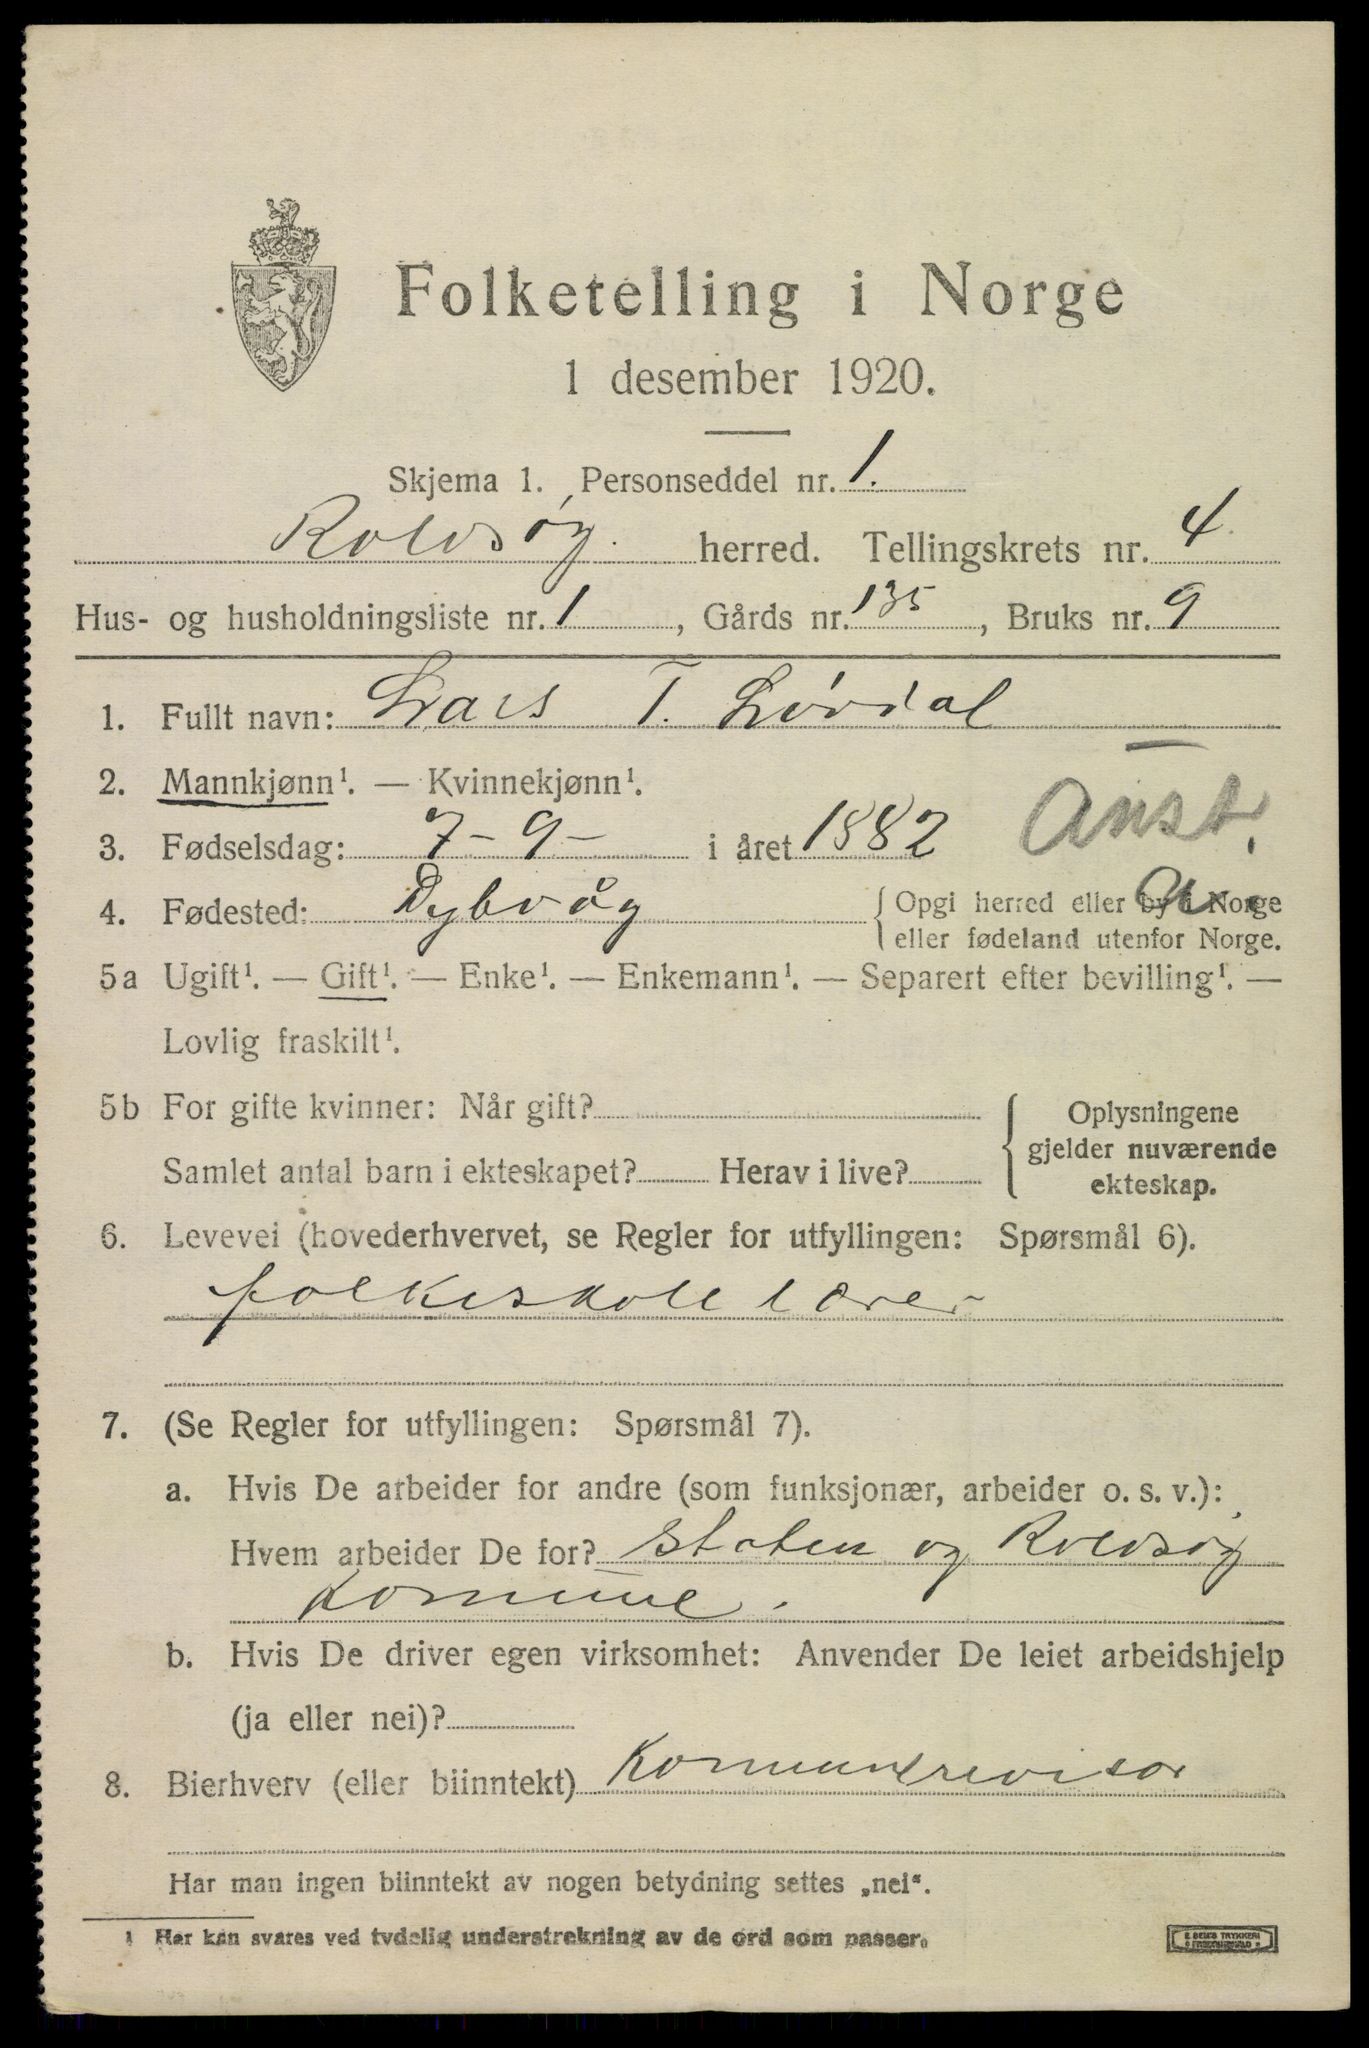 Folketelling i Norge
1 desember 1920.
Skjema 1. Personseddel nr. 1.
Rolvsøy herred. Tellingskrets nr. 4
Hus- og husholdningsliste nr. 1, Gårds nr. 135, Bruks nr. 9
1. Fullt navn: Lars T. Løvdal
2. Mannkjønn¹. — Kvinnekjønn¹.
3. Fødselsdag: 7-9- i året 1882
Anst.
4. Fødested: Dybvåg
Opgi herred eller by i Norge
eller fødeland utenfor Norge.
5a Ugift¹. — Gift¹. — Enke¹. — Enkemann¹. — Separert efter bevilling¹. —
Lovlig fraskilt¹.
5b For gifte kvinner: Når gift?
Samlet antal barn i ekteskapet? Herav i live?
Oplysningene
gjelder nuværende
ekteskap.
6. Levevei (hovederhvervet, se Regler for utfyllingen: Spørsmål 6).
folkeskolelærer
7. (Se Regler for utfyllingen: Spørsmål 7).
a. Hvis De arbeider for andre (som funksjonær, arbeider o. s. v.):
Hvem arbeider De for? Staten og Rolvsøy
kommune.
b. Hvis De driver egen virksomhet: Anvender De leiet arbeidshjelp
(ja eller nei)?
8. Bierhverv (eller biinntekt) Kommunerevisor
Har man ingen biinntekt av nogen betydning settes „nei“.
1 Her kan svares ved tydelig understrekning av de ord som passer.